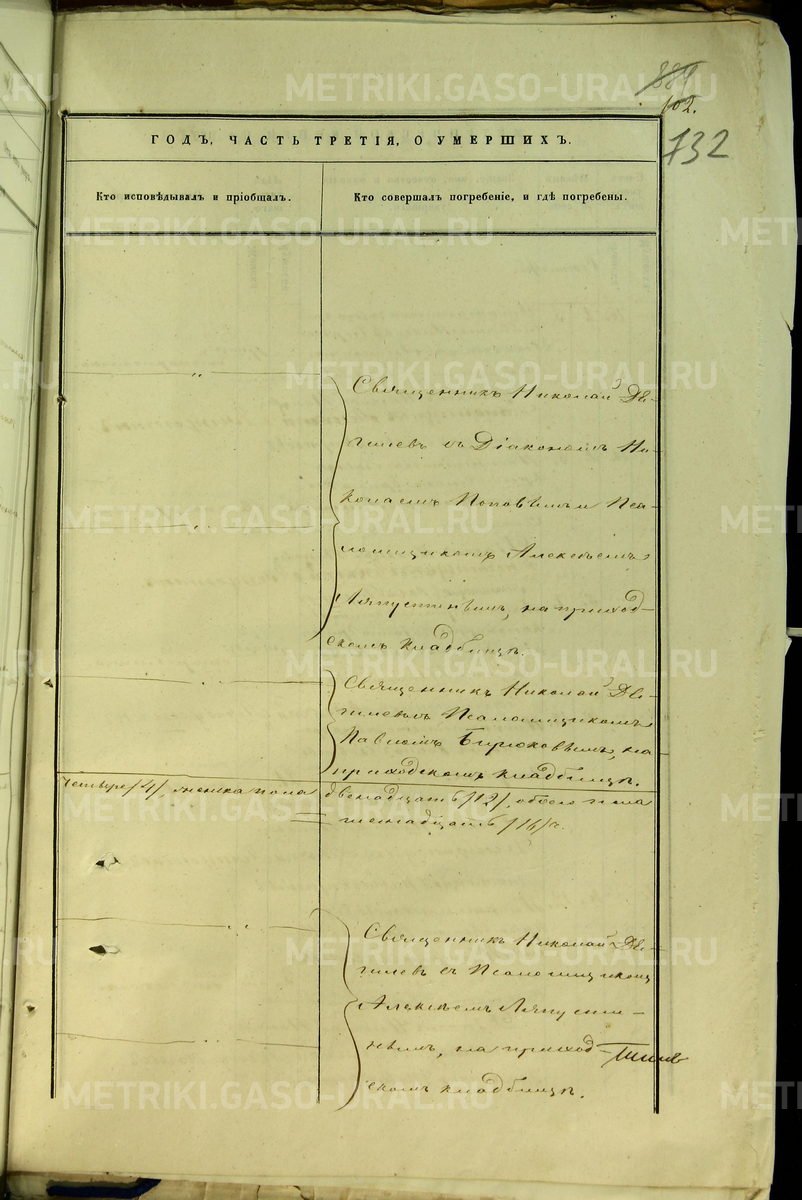 884
102.
732
ГОДЪ, ЧАСТЬ ТРЕТІЯ, О УМЕРШИХЪ.
Кто исповѣдывалъ и пріобщалъ.
Кто совершалъ погребеніе, и гдѣ погребены.
Священникъ Николай Дя-
гилевъ съ Діакономъ Ни-
колаемъ Поповымъ и Пса-
ломщикомъ Алексѣемъ
Ляпустинымъ, на приход-
скомъ кладбищѣ.
Священникъ Николай Дя-
гилевъ съ Псаломщикомъ
Павломъ Бирюковымъ, на
приходскомъ кладбищѣ.
четыре /4/, женска пола двенадцать /12/, обоего пола
шестнадцать /16/.
Священникъ Николай Дя-
гилевъ съ Псаломщикомъ
Алексѣемъ Ляпусти-
нымъ, на приход-
скомъ кладбищѣ.
METRIKI.GASO-URAL.RU